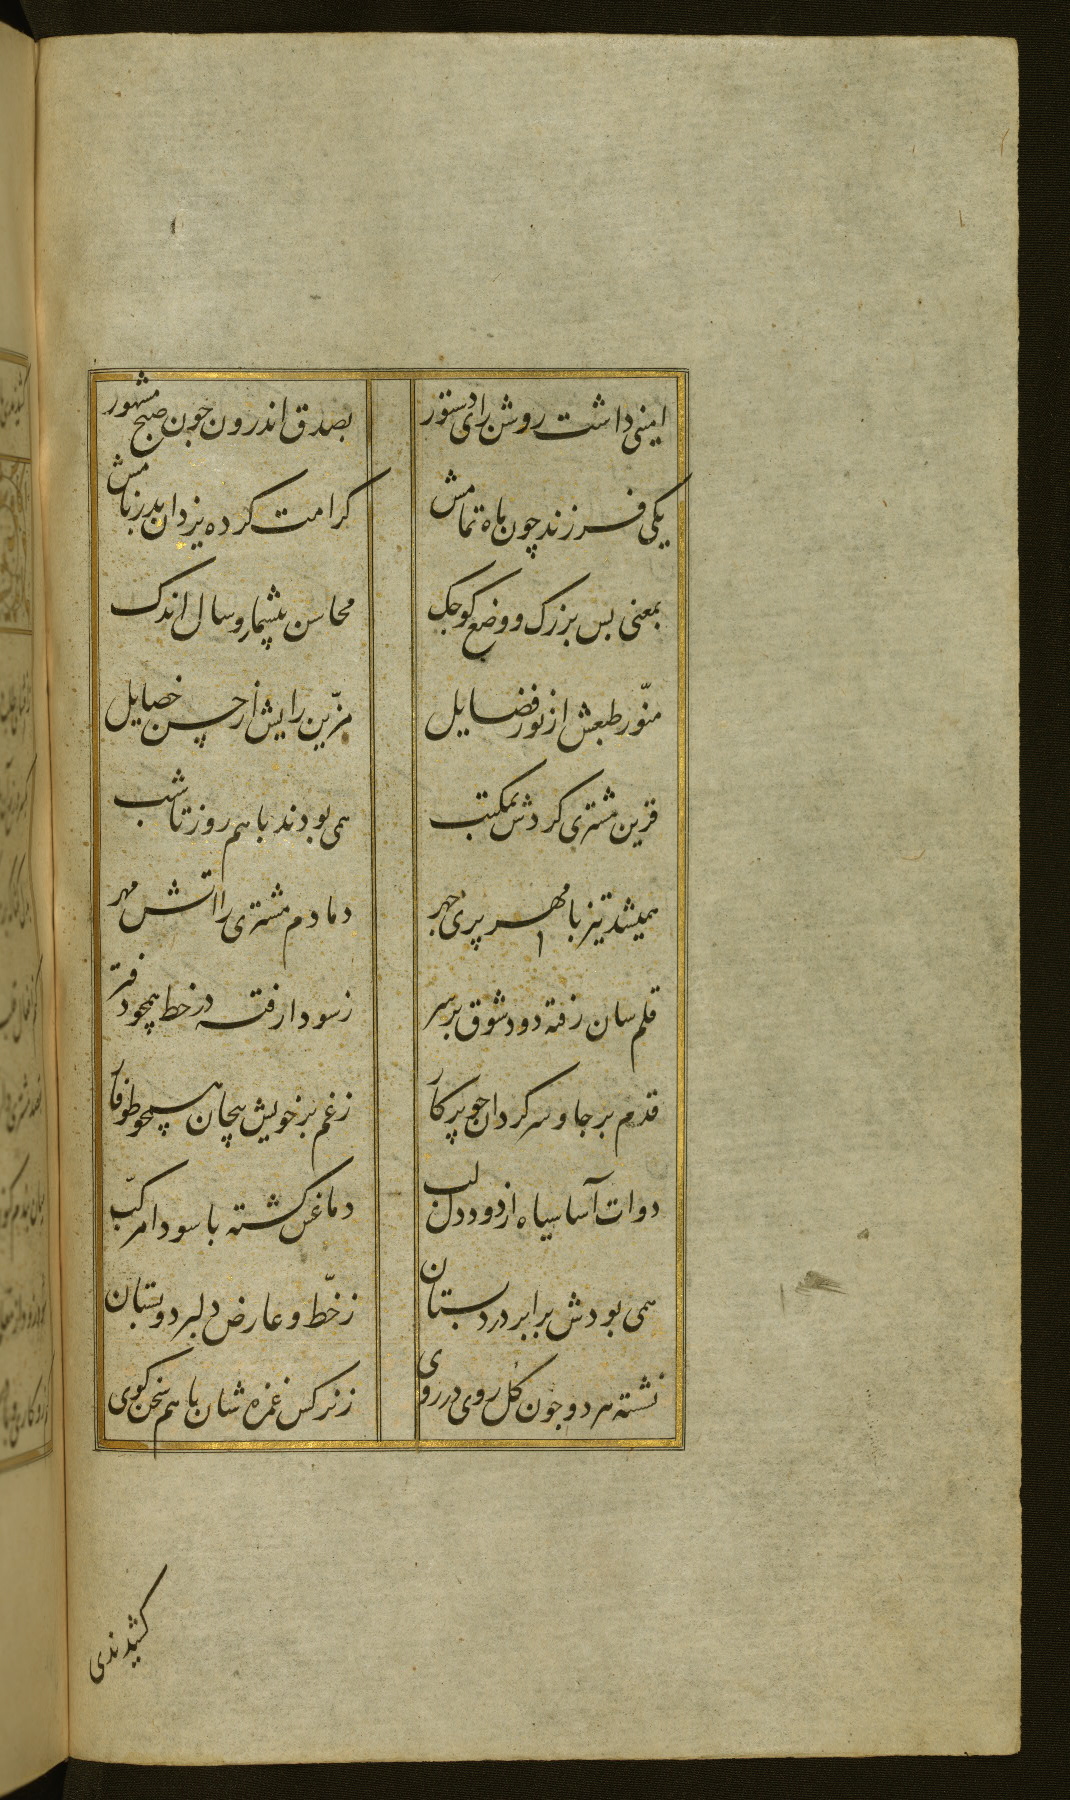 امینی داشت روشن رای دستور بصدق اندرون جون صبح مشهور
یکی فرزند چون ماه تمامش کرامت کرده یزدان بدر نامش
بمعنی بس بزرک و وضع کوجک محاسن بیشمار و سال اندک
منوّر طبعش از نور فضایل مزّین رایش از حسن خصایل
قرین مشتری کردش بمکتب همی بودند با هم روز تا شب
همیشد تیز با مهر پری جهر دمادم مشتری را اتش مهر
قلم سان رفته دود شوق بر سر ز سودا رفته در خط همچو دفتر
قدم بر جا و سر کردان جو پرکار ز غم بر خویش پیچان همچو طوفار
دوات آسا سیاه از دود دل لب دماغش کشته با سودا مرکّب
همی بودش برابر در دبستان ز خطّ و عارض دلبر دو بستان
نشسته هر دو جون کل روی در روی ز نرکس غمزه شان با هم سخن کوی
کشیدندی